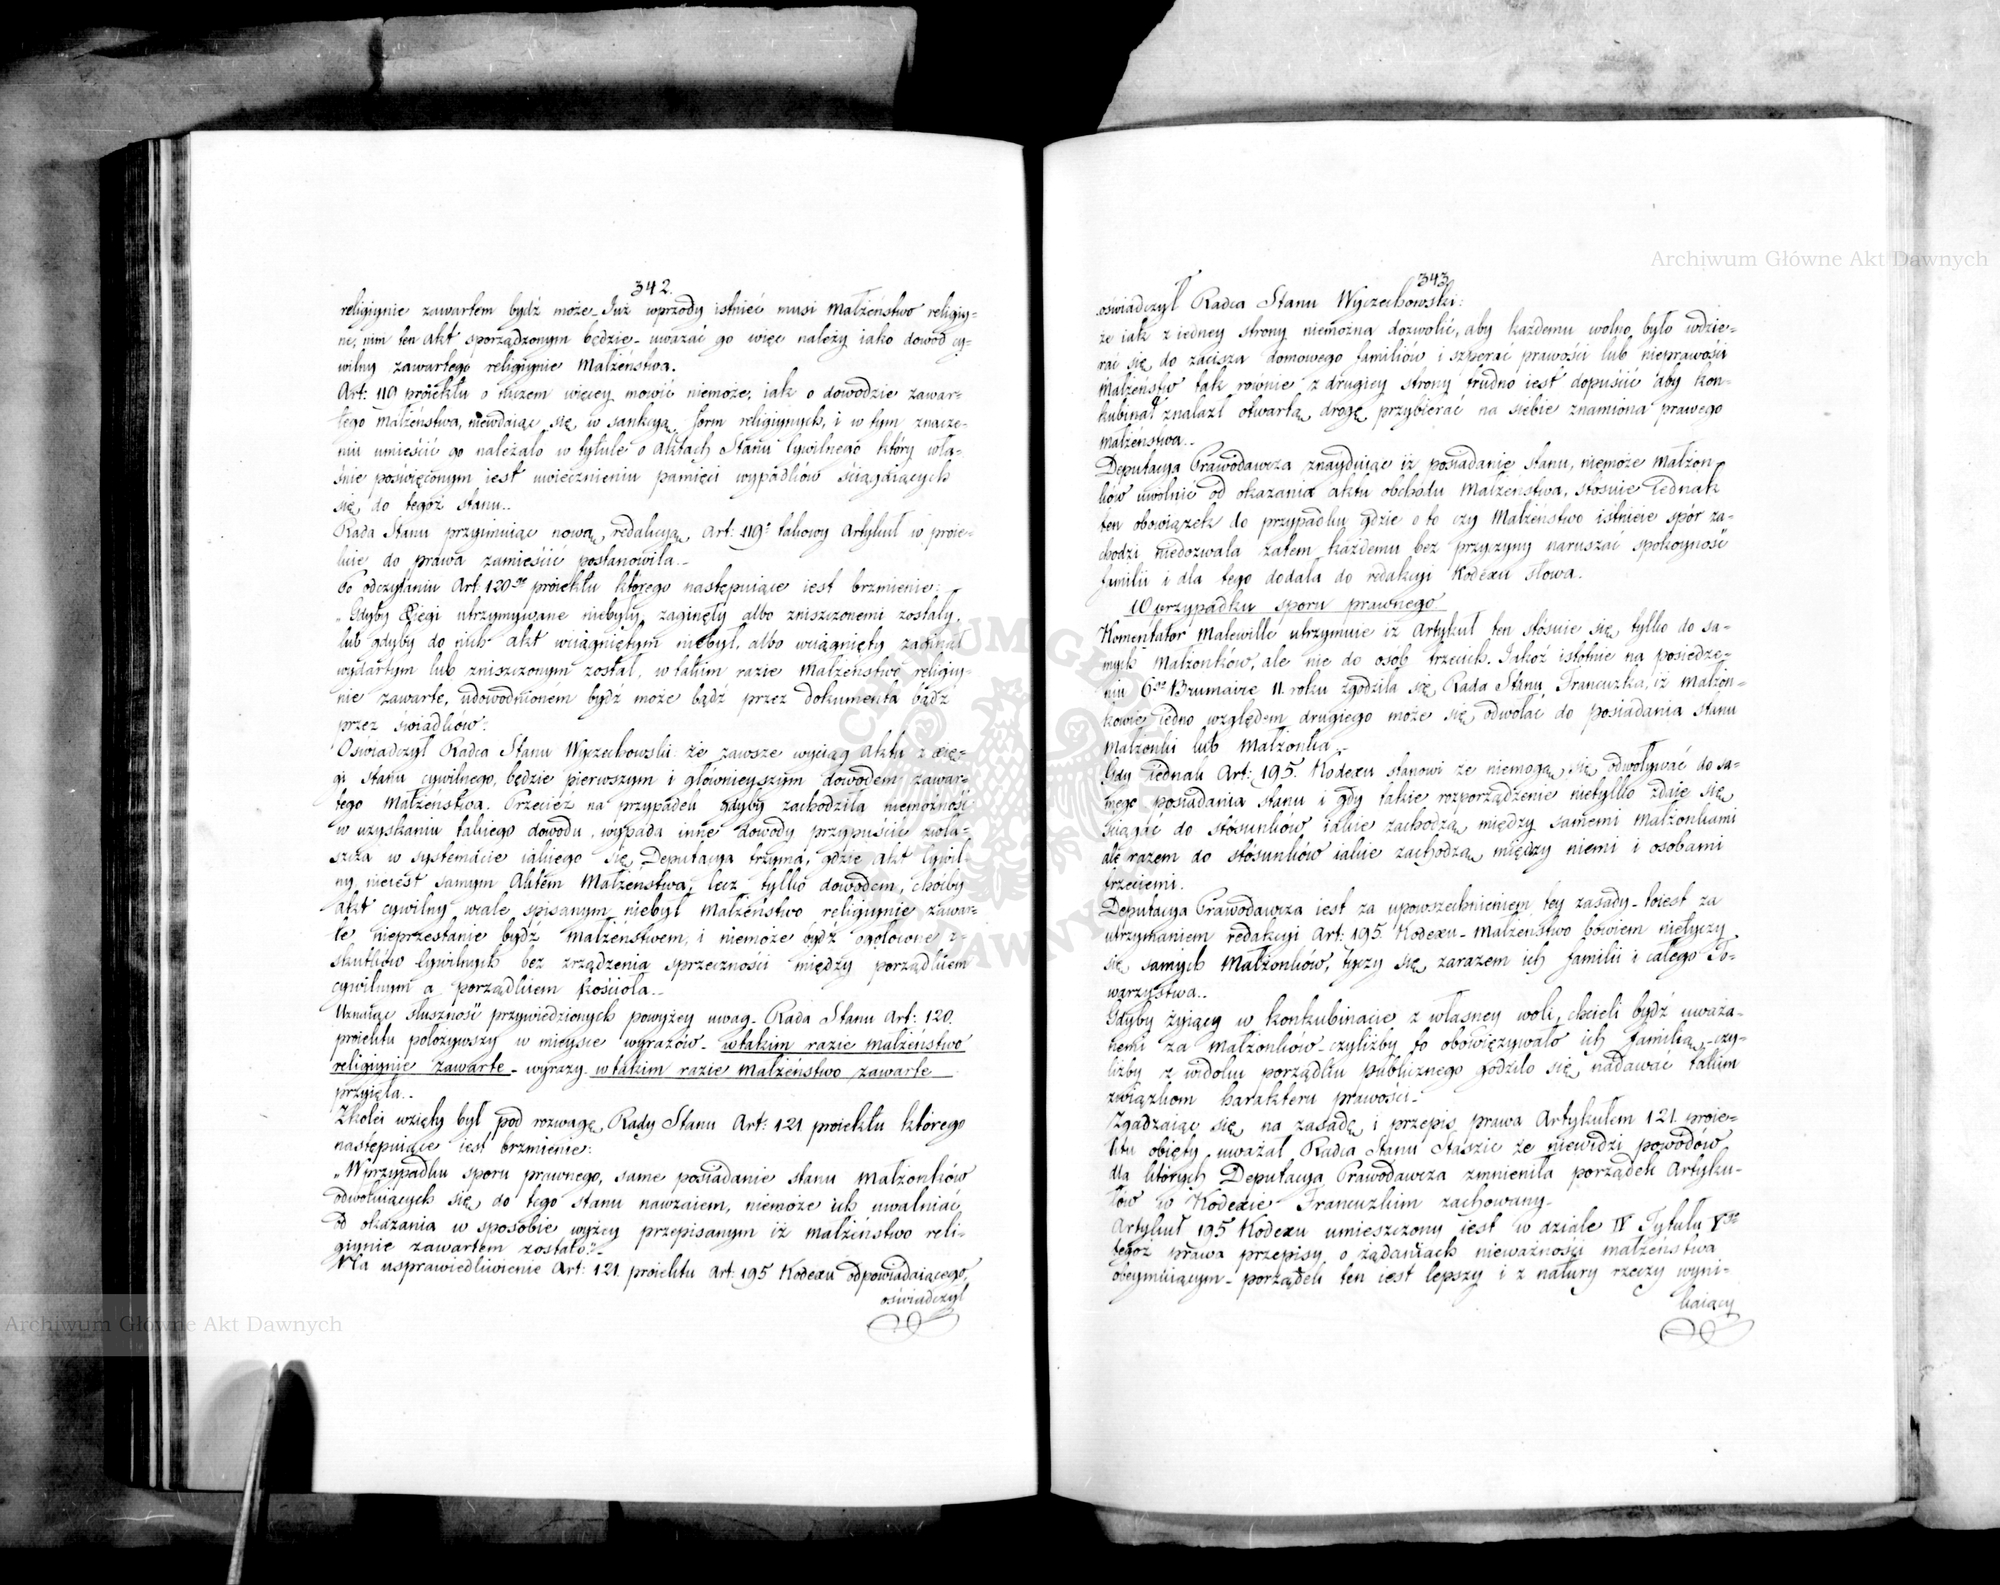 342.
religiynie zawartem bydź może_ Już wprzody istnieć musi Małżeństwo religiy=
nie, nim ten akt sporządzonym będzie_ uważać go więc należy iako dowod cy=
wilny zawartego religiynie Małżeństwa.
Art: 119 proiektu o niczem więcey mowić niemoże, iak o dowodzie zawar=
tego Małżeństwa, niewdaiąc się w sankcyą form religiynych, i w tym znacze=
niu umieścić go należało w tytule o Aktach Stanu Cywilnego który wła=
śnie poświęconym iest uwiecznieniu pamięci wypadków ściągaiących
się do tegoż stanu..
Rada Stanu przyimuiąc nową redakcyą Art: 119º takowy Artykuł w proie=
kcie do prawa zamieścić postanowiła._
Po odczytaniu Art: 120go proiektu którego następuiące iest brzmienie:
„Gdyby Xięgi utrzymywane niebyły, zaginęły albo zniszczonemi zostały,
lub gdyby do nich akt wciągniętym niebył, albo wciągnięty zaginął
wydartym lub zniszczonym został, w takim razie Małżeństwo religiy=
nie zawarte, udowodnionem bydź może bądź przez dokumenta bądź
przez świadków:
Oświadczył Radca Stanu Wyczechowski: że zawsze wyciąg Aktu z xię=
gi stanu cywilnego, będzie pierwszym i głównieyszym dowodem zawar=
tego Małżeństwa. Przecież na przypadek gdyby zachodziła niemożność
w uzyskaniu takiego dowodu, wypada inne dowody przypuścić zwła=
szcza w systemacie iakiego się Deputacya trzyma, gdzie akt Cywil=
ny nieiest samym Aktem Małżeństwa, lecz tylko dowodem, choćby
akt cywilny wcale spisanym niebył Małżeństwo religiynie zawar=
te nieprzestanie bydź Małżeństwem, i niemoże bydź ogołocone z=
skutków Cywilnych bez zrządzenia sprzeczności między porządkiem
cywilnym a porządkiem kościoła._
Uznaiąc słuszność przywiedzionych powyżey uwag_ Rada Stanu Art: 120.
proiektu położywszy w mieysce wyrazów_ w takim razie małżeństwo
religiynie zawarte_ wyrazy_ w takim razie Małżeństwo zawarte
przyięła..
Zkolei wzięty był pod rozwagę Rady Stanu Art: 121 proiektu którego
następuiące iest brzmienie:
„W przypadku sporu prawnego, same posiadanie stanu Małżonków
odwołuiących się do tego stanu nawzaiem, niemoże ich uwalniać
od okazania w sposobie wyżey przepisanym iż małżeństwo reli=
giynie zawartem zostało"_
Na usprawiedliwienie Art: 121. proiektu Art: 195 Kodexu odpowiadaiącego,
oświadczył
343.
oświadczył Radca Stanu Wyczechowski:
że iak z iedney strony niemożna dozwolić, aby każdemu wolno było wdzie=
rać się do zacisza domowego familiów i szperać prawości lub nieprawości
Małżeństw tak równie z drugiey strony trudno iest dopuścić aby kon=
kubinat znalazł otwartą drogę przybierać na siebie znamiona prawego
małżeństwa..
Deputacya Prawodawcza znayduiąc iż posiadanie stanu, niemoże Małżon=
ków uwolnić od okazania aktu obchodu Małżeństwa, stosuie iednak
ten obowiązek do przypadku gdzie o to czy Małżeństwo istnieie spór za=
chodzi niedozwala zatem każdemu bez przyczyny naruszać spokoyność
familii i dla tego dodała do redakcyi Kodexu słowa.
W przypadku sporu prawnego.
Komentator Malewille utrzymuie iż Artykuł ten stosuie się tylko do sa=
mych Małżonków, ale nie do osób trzecich. Jakoż istotnie na posiedze=
niu 6go Brumaire 11. roku zgodziła się Rada Stanu Francuzka, iż Małżon=
kowie iedno względem drugiego może się odwołać do posiadania stanu
Małżonki lub Małżonka._
Gdy iednak Art: 195. Kodexu stanowi że niemogą się odwoływać do sa=
mego posiadania stanu i gdy takie rozporządzenie nietylko zdaie się
ściągać do stosunków iakie zachodzą między samemi Małżonkami
ale razem do stosunków iakie zachodzą między niemi i osobami
trzeciemi.
Deputacya Prawodawcza iest za upowszechnieniem tey zasady_ toiest za
utrzymaniem redakcyi Art: 195. Kodexu_ Małżeństwo bowiem nietyczy
się samych Małżonków, tyczy się zarazem ich familii i całego To=
warzystwa..
Gdyby żyiący w konkubinacie z własney woli, chcieli bydź uważa=
nemi za Małżonków_ czyliżby to obowięzywało ich familią_ czy=
liżby z widoku porządku publicznego godziło się nadawać takim
związkom harakteru prawości._
Zgadzaiąc się na zasadę i przepis prawa Artykułem 121. proie=
ktu obięty uważał Radca Stanu Staszic że niewidzi powodów
dla których Deputacya Prawodawcza zmieniła porządek Artyku=
łów w Kodexie Francuzkim zachowany_
Artykuł 195 Kodexu umieszczony iest w dziale IV Tytułu Vgo
tegoż prawa przepisy o żądaniach nieważności małżeństwa
obeymuiącym_ porządek ten iest lepszy i z natury rzeczy wyni=
kaiący
Archiwum Główne Akt Dawnych
Archiwum Główne Akt Dawnych